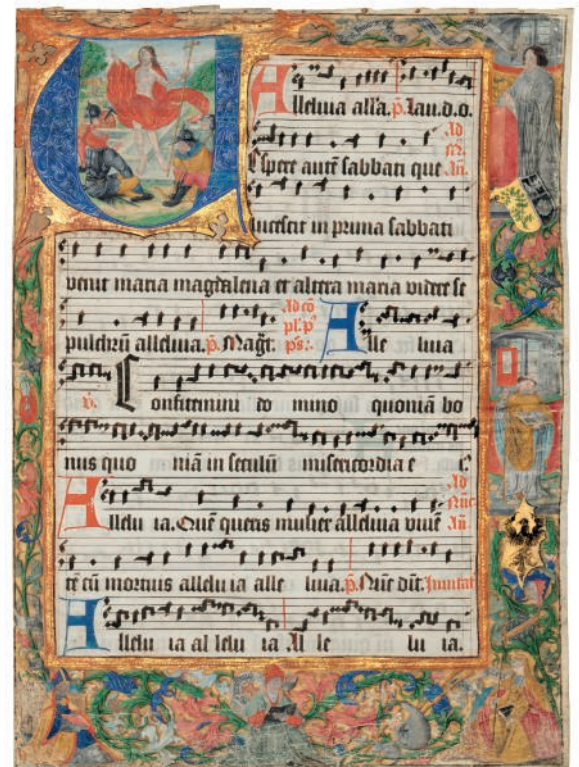 Alleluia all'a. p̃. Lau. d. o.
Espere aute᷉ sabbati que Ad m̃. An̄.
lucescit in prima sabbati
venit maria magdalena et altera maria videre se
pulchrū alleluia. p̃. Mag̃t. Ad cō pl. p̃ ps̄: Alle luia
℣. Confitemini do mino quoniā bo
nus quo niā in seculū misericordia e i᷒
Allelu ia. Quē queris mulier alleluia viuē Ad Nūc An̄.
tē cū mortuis allelu ia alle luia. p̃. Nūc dīt. Inuitat
Allelu ia al lelu ia Al le lu ia.